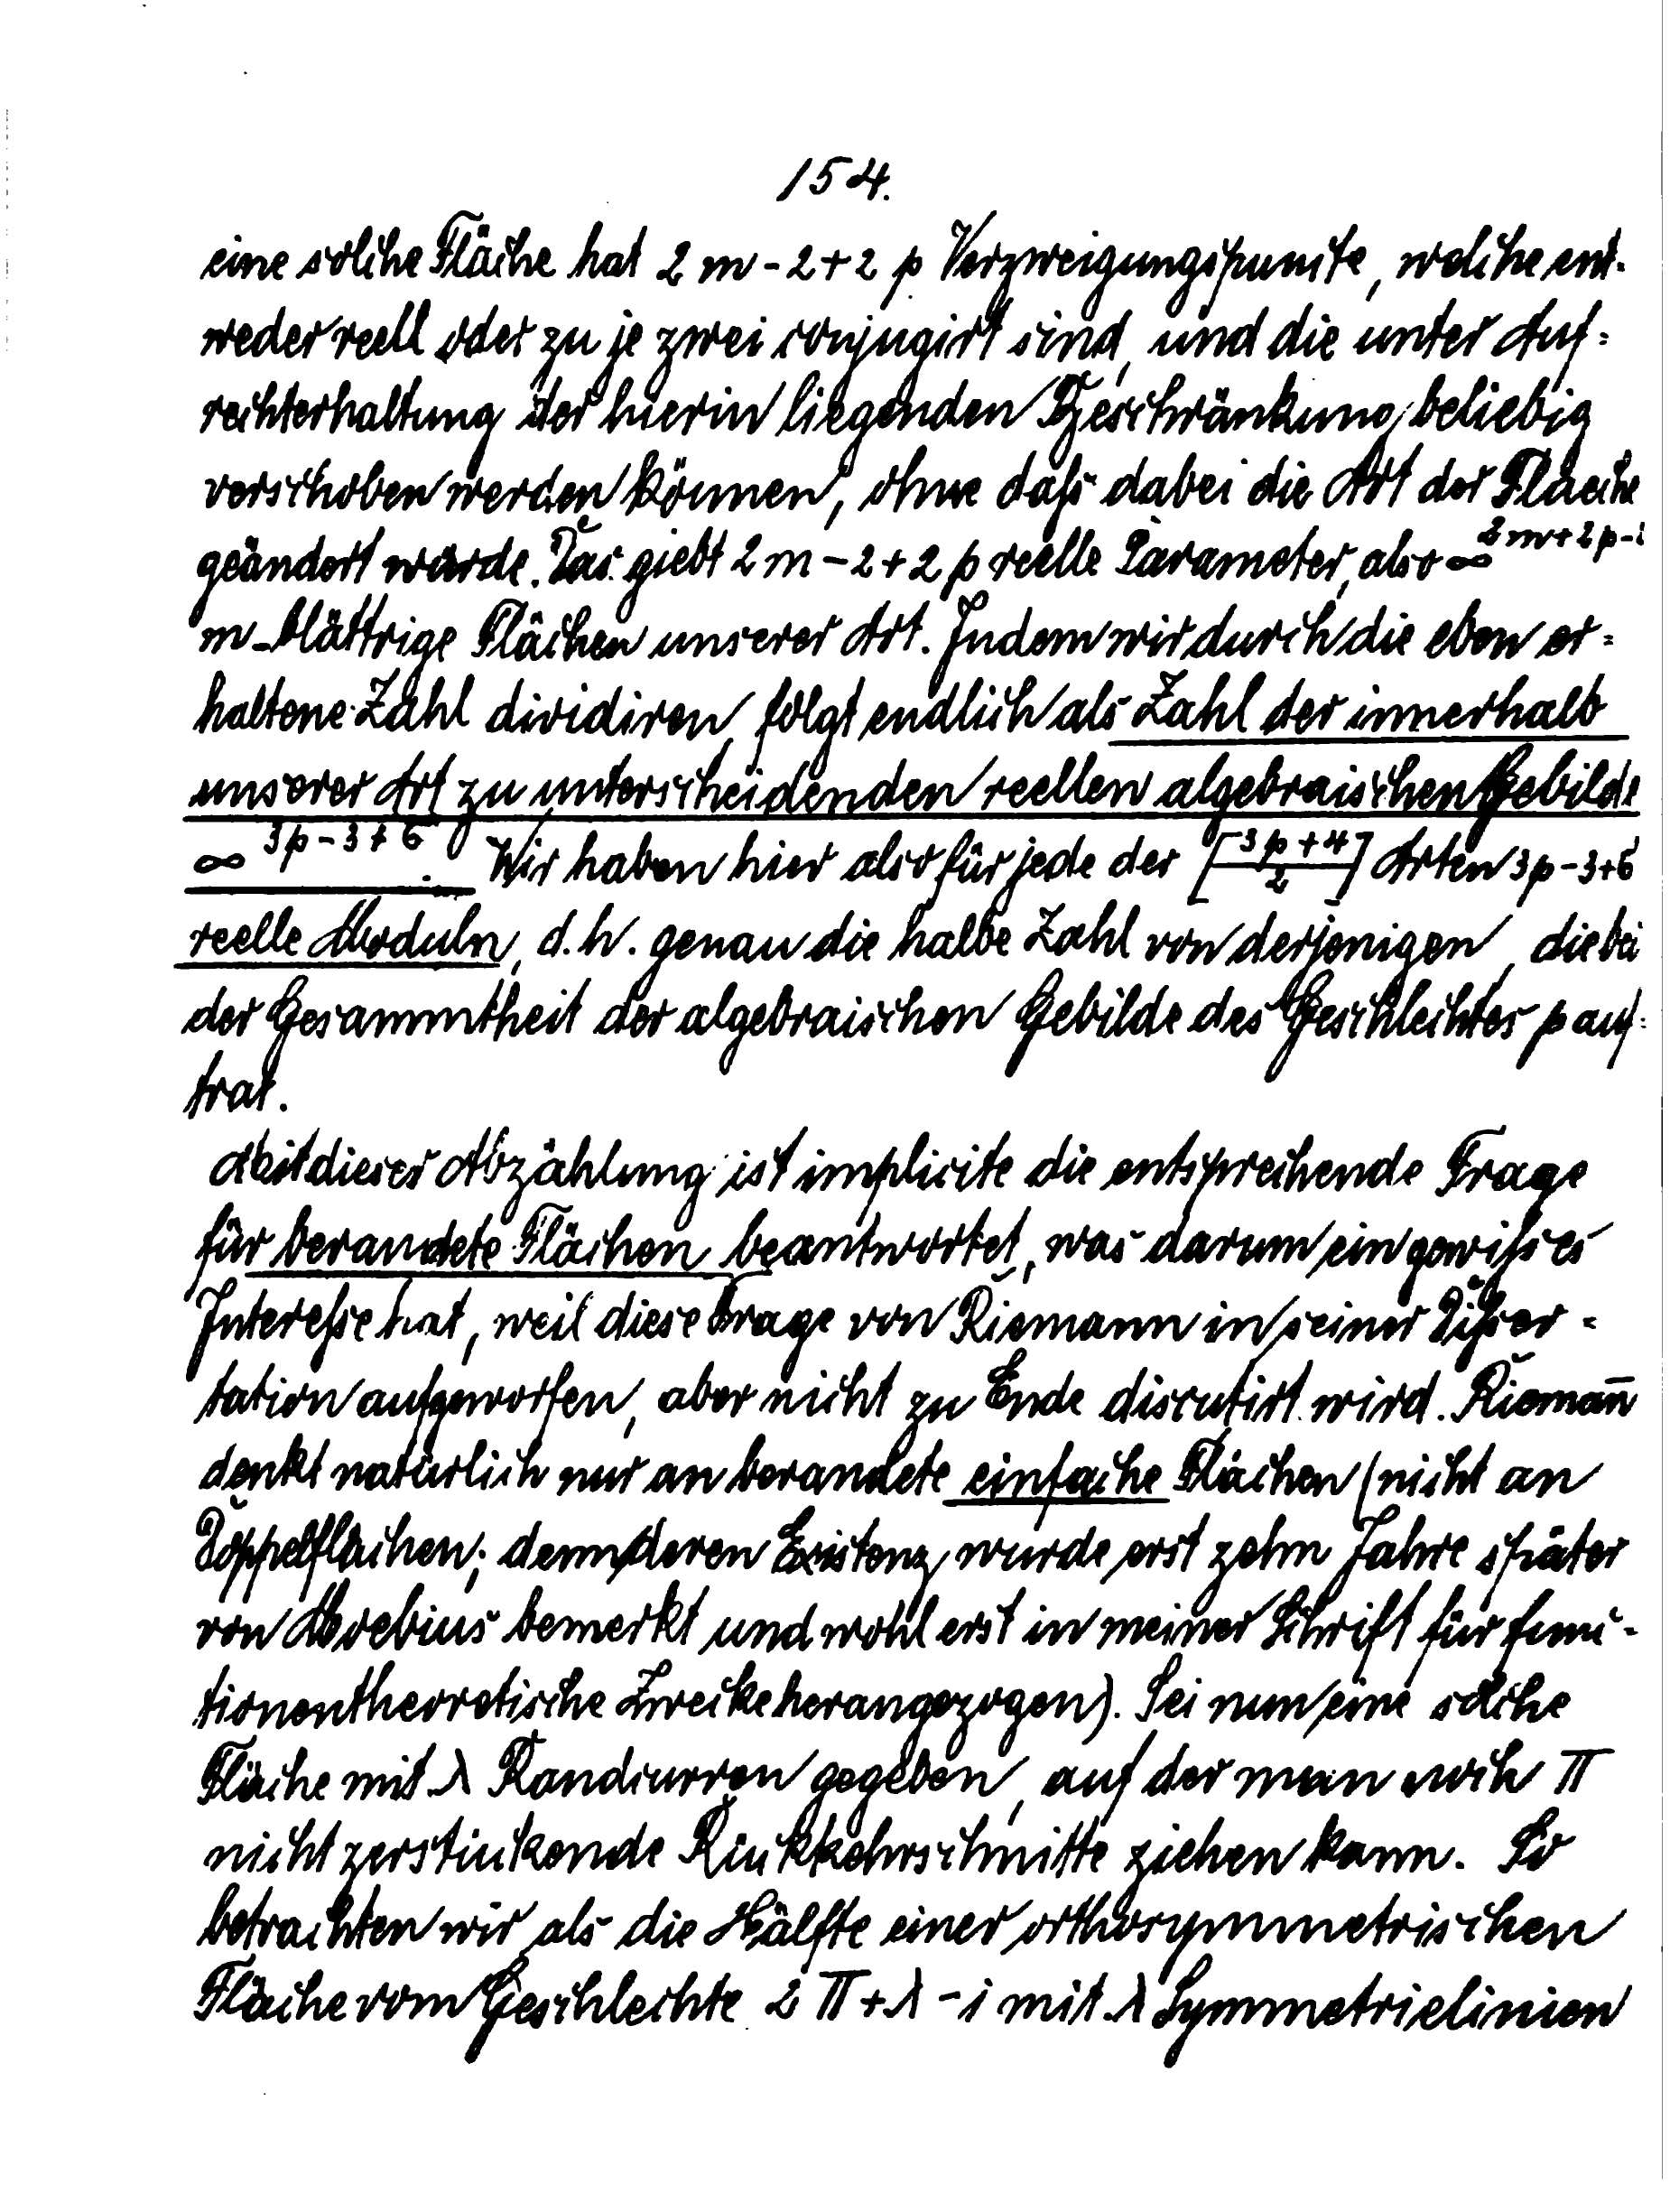 154.
eine solche Fläche hat 2m-2+2p Verzweigungspuncte, welche ent-
weder reell oder zu je zwei conjugirt sind, und die unter Auf=
rechterhaltung der hierin liegenden Beschränkung beliebig
verschoben werden können, ohne daſs dabei die Art der Flaeche
geändert würde. Das giebt 2m-2+2p reelle Parameter, also ∞^{2m+2p-2}
m-blättrige Flächen unserer Art. Indem wir durch die eben er=
haltene Zahl dividiren, folgt endlich als Zahl der innerhalb
unserer Art zu unterscheidenden reellen algebraischen Gebilde
∞^{3p-3+б}. Wir haben hier also für jede der [\frac{3p+4}{2}] Arten 3p-3+б
reelle Moduln, d.h. genau die halbe Zahl von derjenigen, die bei
der Gesammtheit der algebraischen Gebilde des Geschlechtes p auf=
trat.
Mit dieser Abzählung ist implicite die entsprechende Frage
für berandete Flächen beantwortet, was darum ein gewiſses
Intereſse hat, weil diese Frage von Riemann in seiner Diſser=
tation aufgeworfen, aber nicht zu Ende discutirt wird. Riemañ
denkt natürlich nur an berandete einfache Flächen (nicht an
Doppelflächen; denn deren Existenz wurde erst zehn Jahre später
von Moebius bemerkt und wohl erst in meiner Schrift für func-
tionentheoretische Zwecke herangezogen). Sei nun eine solche
Fläche mit λ Randcurven gegeben, auf der man noch π
nicht zerstückende Rückkehrschnitte ziehen kann. So
betrachten wir als die Hälfte einer orthosymmetrischen
Fläche vom Geschlechte 2π+λ-1 mit λ Symmetrielinien